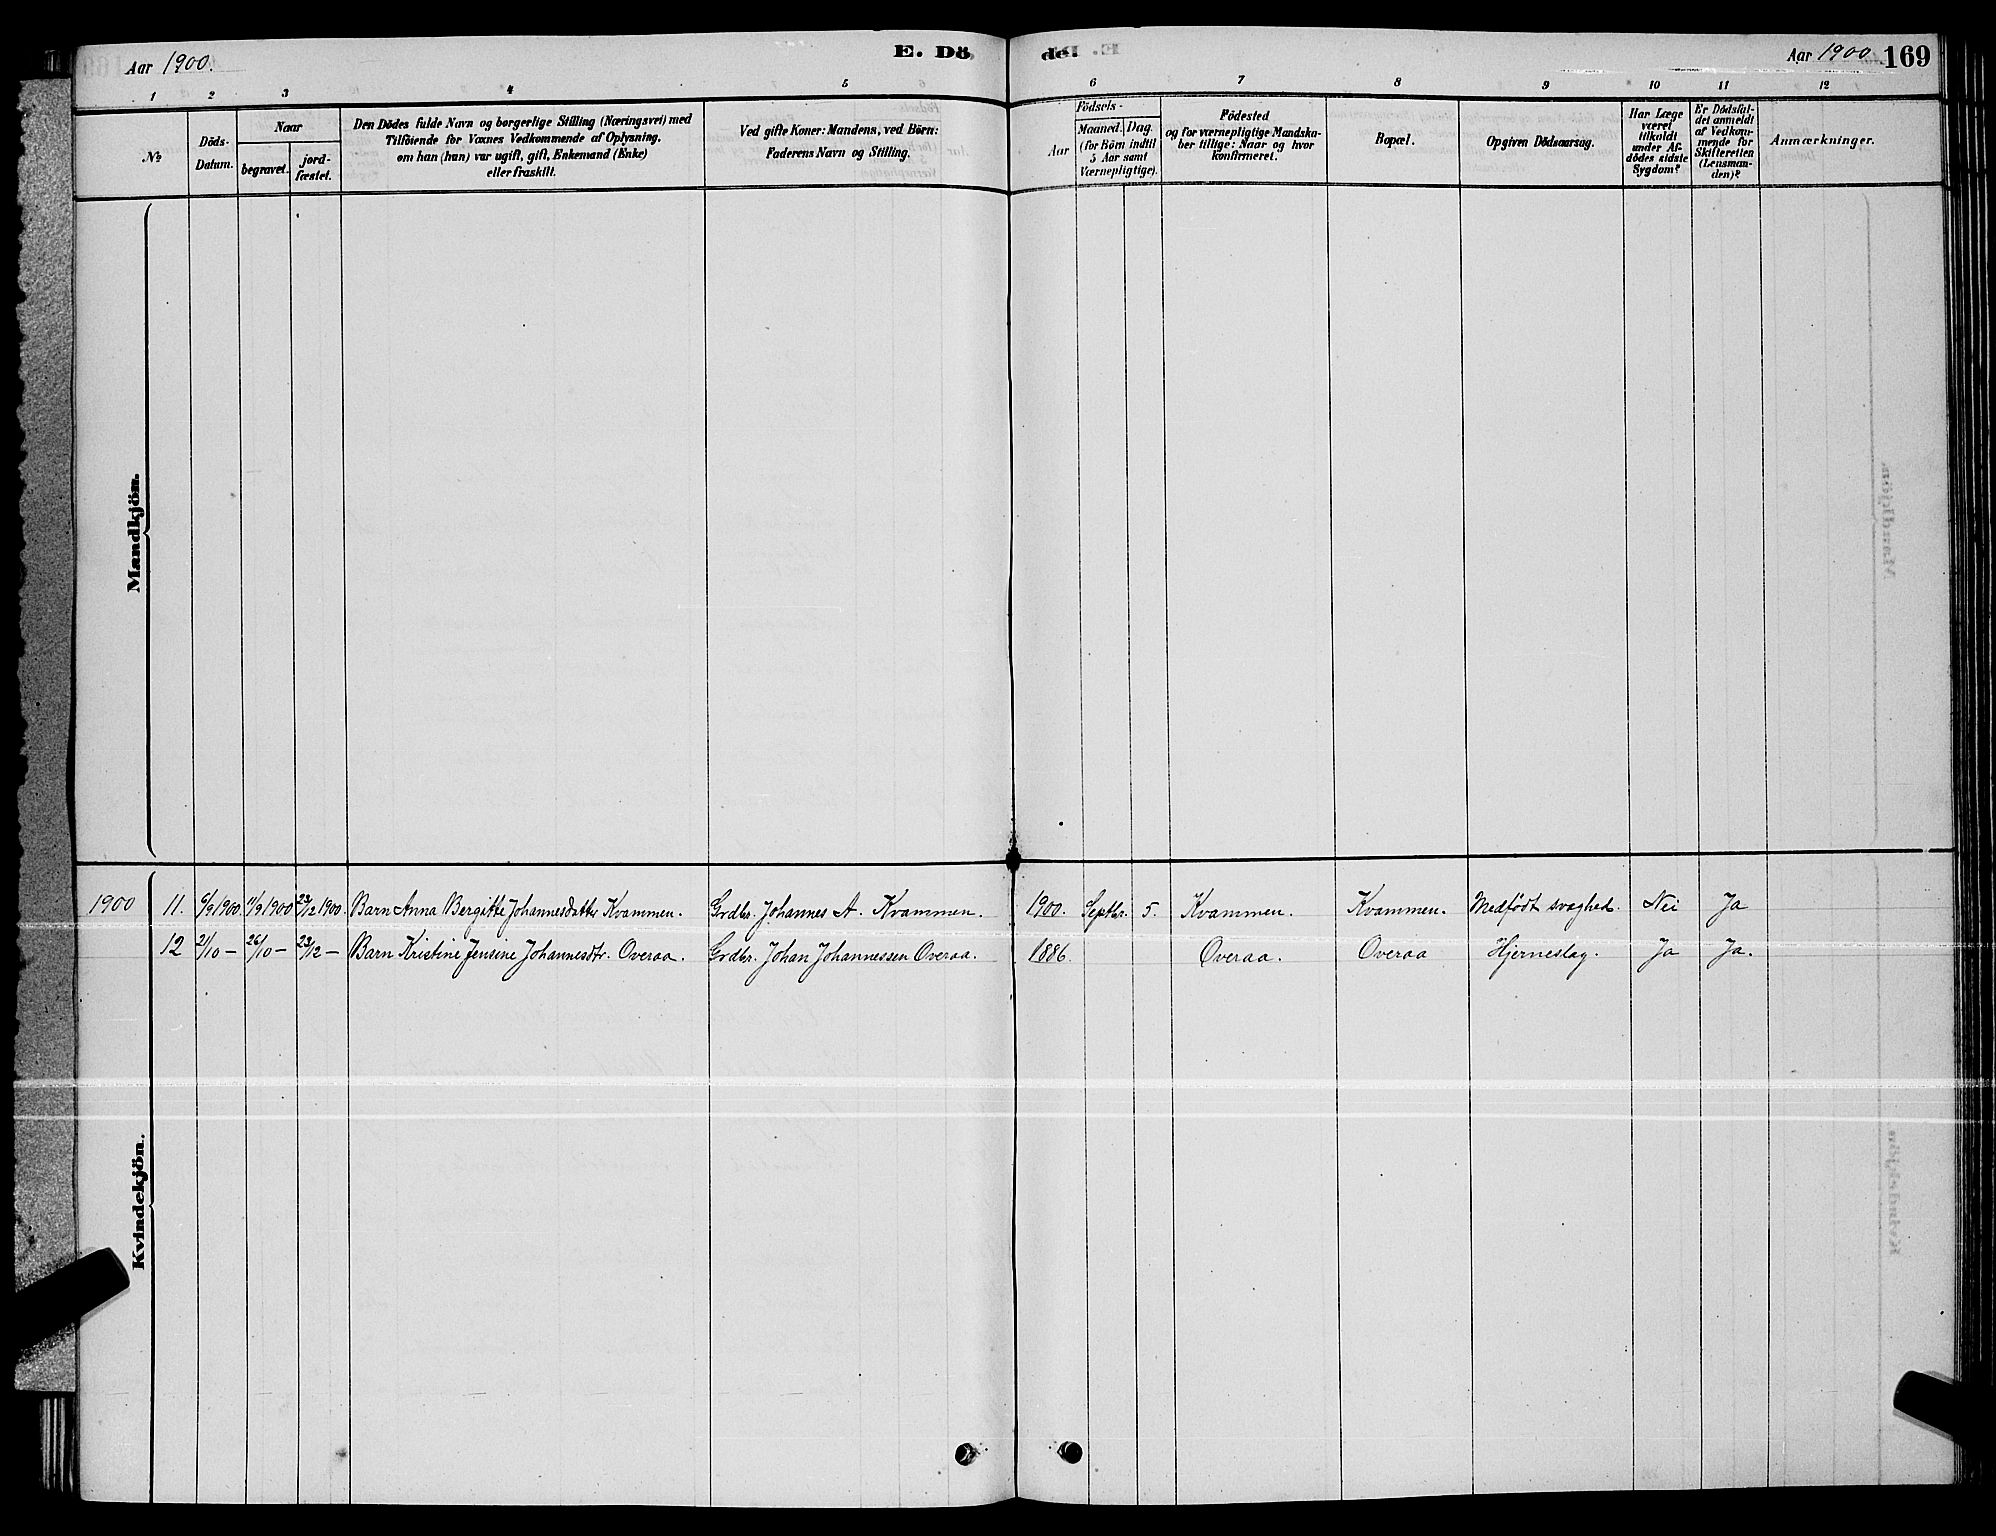 Aar 1900.
E. Dö
de.
Aar 1900
169
1 2 3 4 5 6 7 8 9 10 11 12
No
Döds-
Datum.
Naar
begravet.
jord-
fæstet.
Den Dödes fulde Navn og borgerlige Stilling (Næringsvei) med
Tilföiende for Voxnes Vedkommende af Oplysning,
om han (hun) var ugift, gift, Enkemand (Enke)
eller fraskilt.
Ved gifte Koner: Mandens, ved Börn:
Faderens Navn og Stilling.
Födsels-
Aar
Maaned.
Dag
(for Börn indtil
5 Aar samt
Værnepligtige).
Födested
og for værnepligtige Mandska-
ber tillige: Naar og hvor
konfirmeret.
Bopæl.
Opgiven Dödsaarsag.
Har Læge
været
tilkaldt
under Af-
dödes sidste
Sygdom?
Er Dödsfal-
det anmeldt
af Vedkom-
mende for
Skifteretten
(Lensman-
den)?
Anmærkninger.
Mandkjön.
Kvindekjön.
1900 11. 6/9 1900. 11/9 1900 23/12 1900. Barn Anna Bergitte Johannesdatter Kvammen. Grdbr. Johannes A. Kvammen. 1900. Septbr. 5. Kvammen. Kvammen. Medfödt svaghed. Nei Ja
12 21/10 – 26/10 – 23/12 – Barn Kristine Jensine Johannesdtr. Overaa. Grdbr. Johan Johannessen Overaa. 1886. Overaa. Overaa Hjerneslag. Ja Ja.